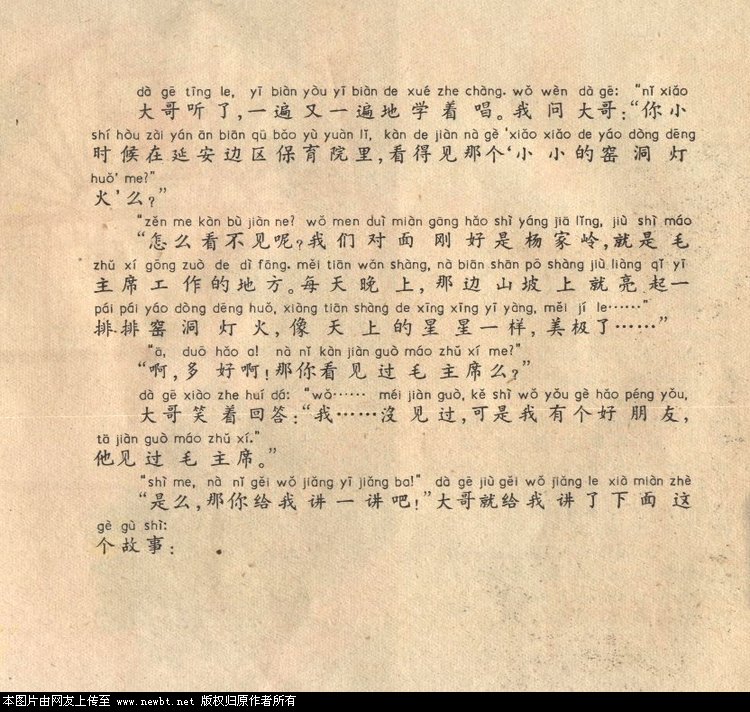 dà gē tīng le, yī biàn yòu yī biàn de xué zhe chàng. wǒ wèn dà gē: "nǐ xiǎo
大哥听了,一遍又一遍地学着唱。我问大哥:“你小
shí hòu zài yán ān biān qū bǎo yù yuàn lǐ, kàn de jiàn nà gè 'xiǎo xiǎo de yáo dòng dēng
时候在延安边区保育院里,看得见那个‘小小的窑洞灯
huǒ' me?"
火’么?”
"zěn me kàn bù jiàn ne? wǒ men duì miàn gāng hǎo shì yáng jiā lǐng, jiù shì máo
“怎么看不见呢?我们对面刚好是杨家岭,就是毛
zhǔ xí gōng zuò de dì fāng. měi tiān wǎn shàng, nà biān shān pō shàng jiù liàng qǐ yī
主席工作的地方。每天晚上,那边山坡上就亮起一
pái pái yáo dòng dēng huǒ, xiàng tiān shàng de xīng xīng yī yàng, měi jí le……"
排排窑洞灯火,像天上的星星一样,美极了……”
"ā, duō hǎo a! nà nǐ kàn jiàn guò máo zhǔ xí me?"
“啊,多好啊!那你看见过毛主席么?”
dà gē xiào zhe huí dá: "wǒ…… méi jiàn guò, kě shì wǒ yǒu gè hǎo péng yǒu,
大哥笑着回答:“我……沒见过,可是我有个好朋友,
tā jiàn guò máo zhǔ xí."
他见过毛主席。”
"shì me, nà nǐ gěi wǒ jiǎng yī jiǎng ba!" dà gē jiù gěi wǒ jiǎng le xià miàn zhè
“是么,那你给我讲一讲吧!”大哥就给我讲了下面这
gè gù shì:
个故事:
本图片由网友上传至 www.newbt.net 版权归原作者所有